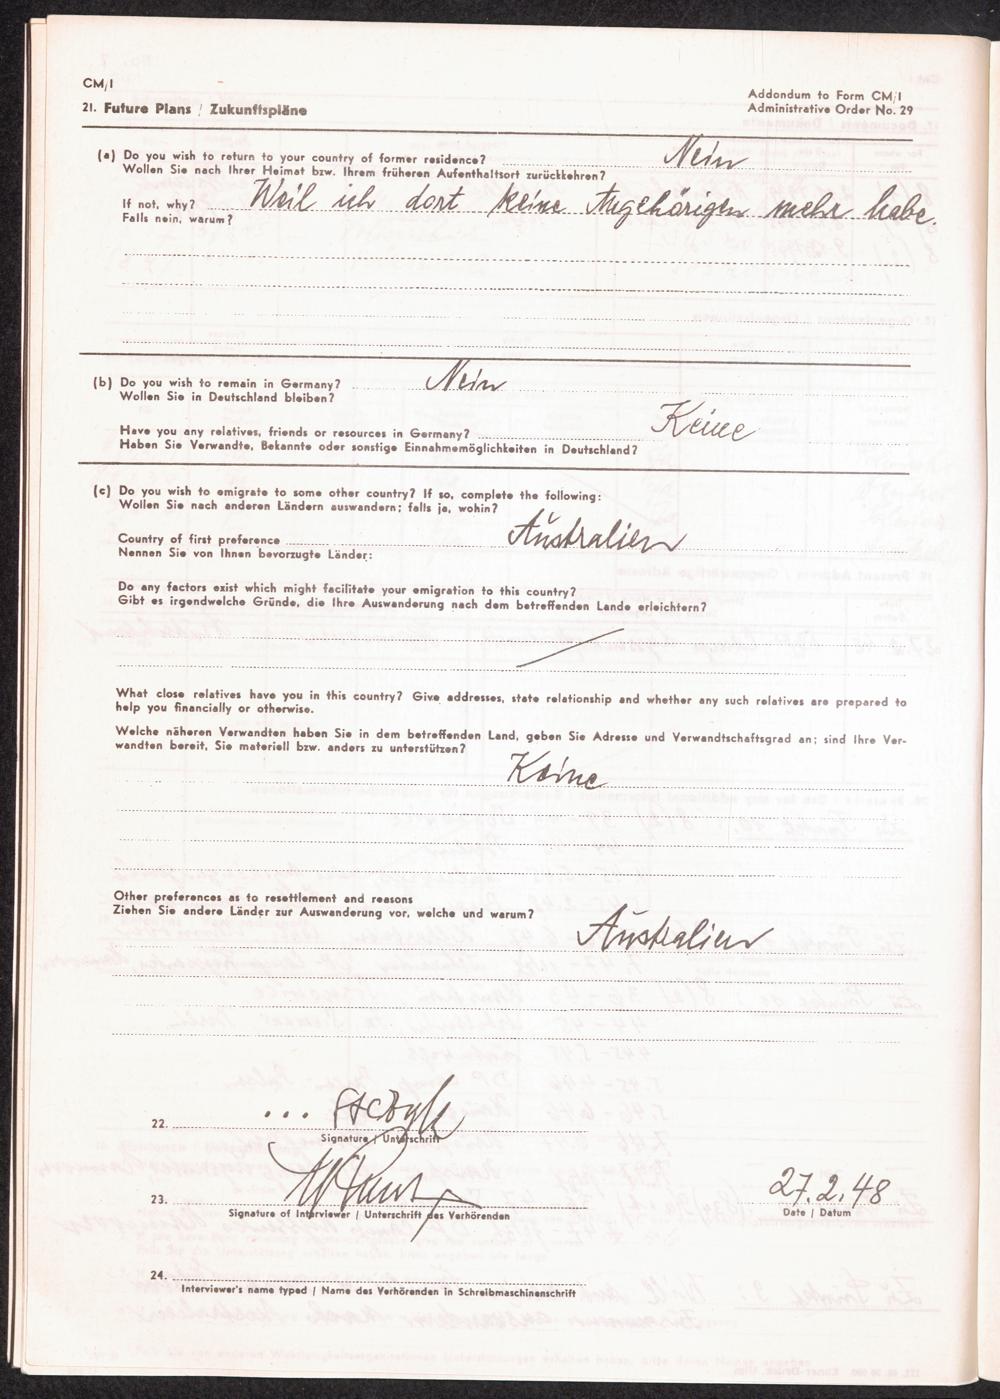 CM/I
Addondum to Form CM/I
21. Future Plans / Zukunftspläne
Administrative Order No. 29
(a) Do you wish to return to your country of former residence? Nein
Wollen Sie nach Ihrer Heimat bzw. Ihrem früheren Aufenthaltsort zurückkehren?
If not, why? Weil ich dort keine Angehörigen mehr habe.
Falls nein, warum?
(b) Do you wish to remain in Germany? Nein
Wollen Sie in Deutschland bleiben?
Have you any relatives, friends or resources in Germany? Keine
Haben Sie Verwandte, Bekannte oder sonstige Einnahmemöglichkeiten in Deutschland?
(c) Do you wish to emigrate to some other country? If so, complete the following:
Wollen Sie nach anderen Ländern auswandern; falls ja, wohin?
Country of first preference Australien
Nennen Sie von Ihnen bevorzugte Länder:
Do any factors exist which might facilitate your emigration to this country?
Gibt es irgendwelche Gründe, die Ihre Auswanderung nach dem betreffenden Lande erleichtern?
What close relatives have you in this country? Give addresses, state relationship and whether any such relatives are prepared to
help you financially or otherwise.
Welche näheren Verwandten haben Sie in dem betreffenden Land, geben Sie Adresse und Verwandtschaftsgrad an; sind Ihre Ver-
wandten bereit, Sie materiell bzw. anders zu unterstützen?
Keine
Other preferences as to resettlement and reasons
Ziehen Sie andere Länder zur Auswanderung vor, welche und warum?
Australien
22.
Signature / Unterschrift
23. 27.2.48
Signature of Interviewer / Unterschrift des Verhörenden Date / Datum
24.
Interviewer's name typed / Name des Verhörenden in Schreibmaschinenschrift